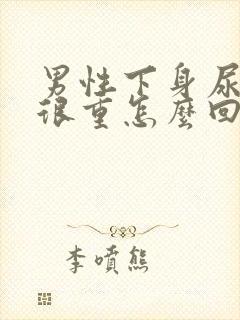 男性下身尿
很重怎麼回
李噴熊